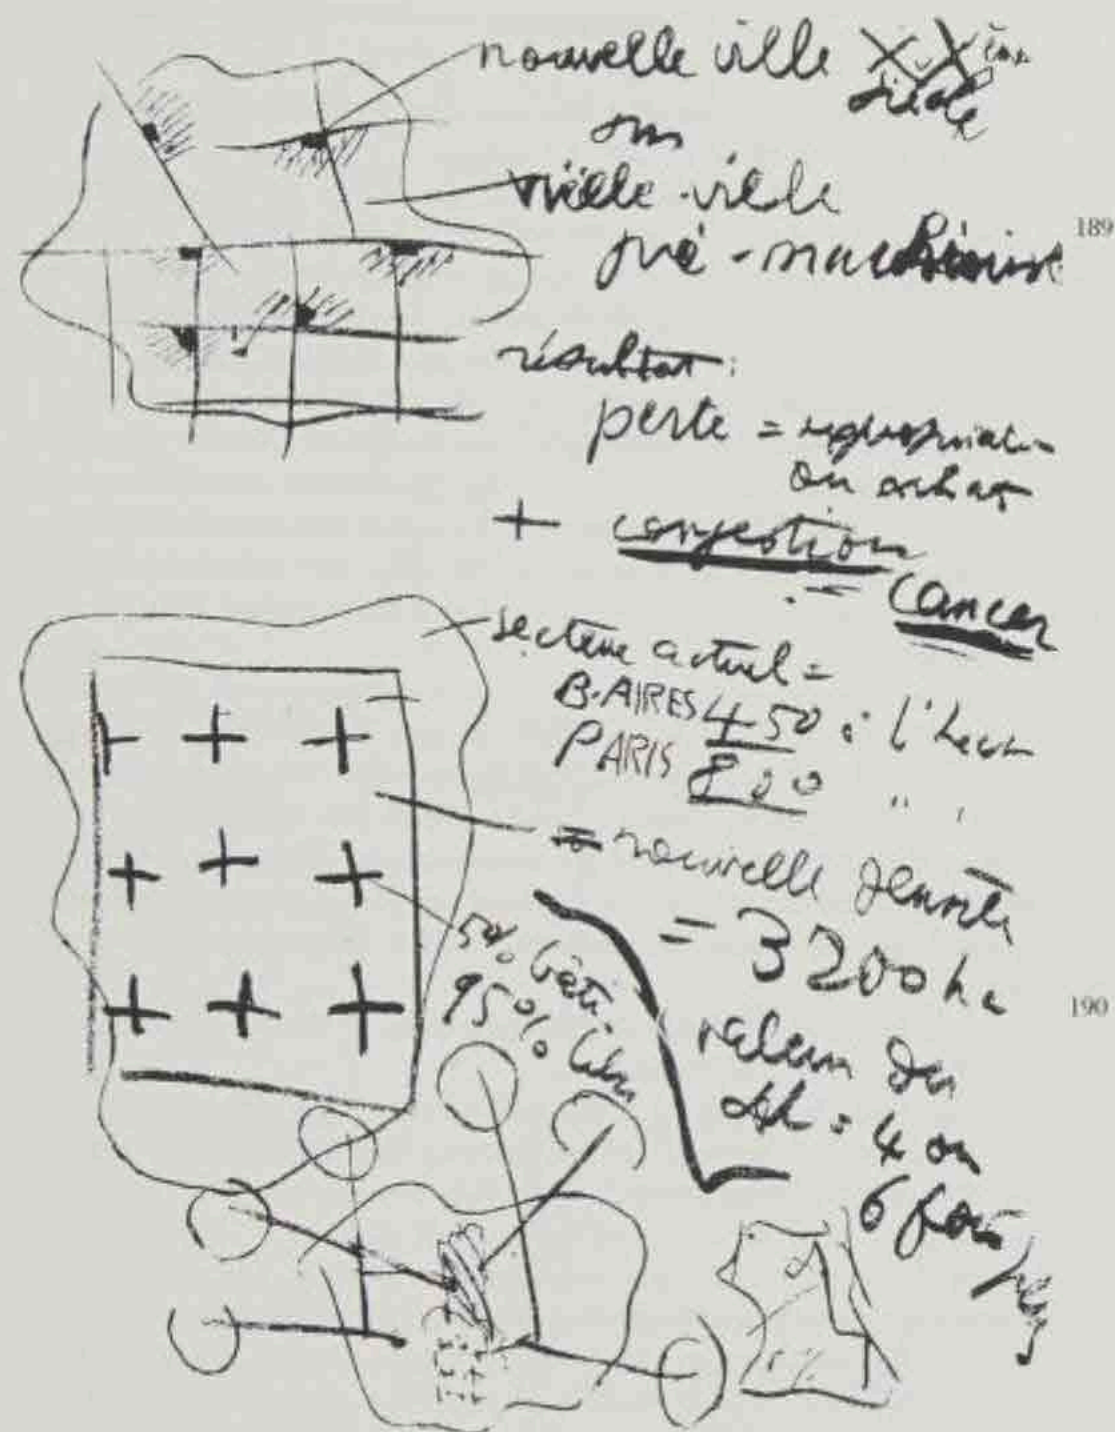 nouvelle ville XXème
siècle
sur
vieille ville
pré-machiniste
189
résultat:
perte = expropriation
ou achat
+ congestion
= cancer
secteur actuel =
B-AIRES 450 à l'hect
PARIS 800 " "
= nouvelle densité
= 3200 ha
5% bâti
95% libre
190
valeur du
= 4 ou
6 fois